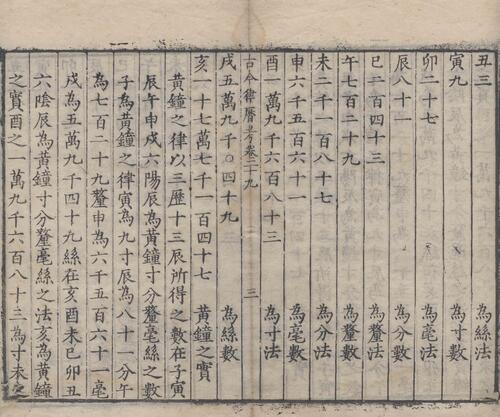 丑三　為絲法
寅九　為寸數
卯二十七　為毫法
辰八十一　為分數
巳二百四十三　為釐法
午七百二十九　為釐數
未二千一百八十七　為分法
申六千五百六十一　為毫數
酉一萬九千六百八十三　為寸法
古今律曆考卷二十九　三
戌五萬九千〇四十九　為絲數
亥一十七萬七千一百四十七　黃鐘之實
黃鐘之律以三歷十三辰所得之數在子寅
辰午申戌六陽辰為黃鐘寸分釐毫絲之數
子為黃鐘之律寅為九寸辰為八十一分午
為七百二十九釐申為六千五百六十一毫
戌為五萬九千四十九絲在亥酉未巳卯丑
六陰辰為黃鐘寸分釐毫絲之法亥為黃鐘
之實酉之一萬九千六百八十三為寸未之